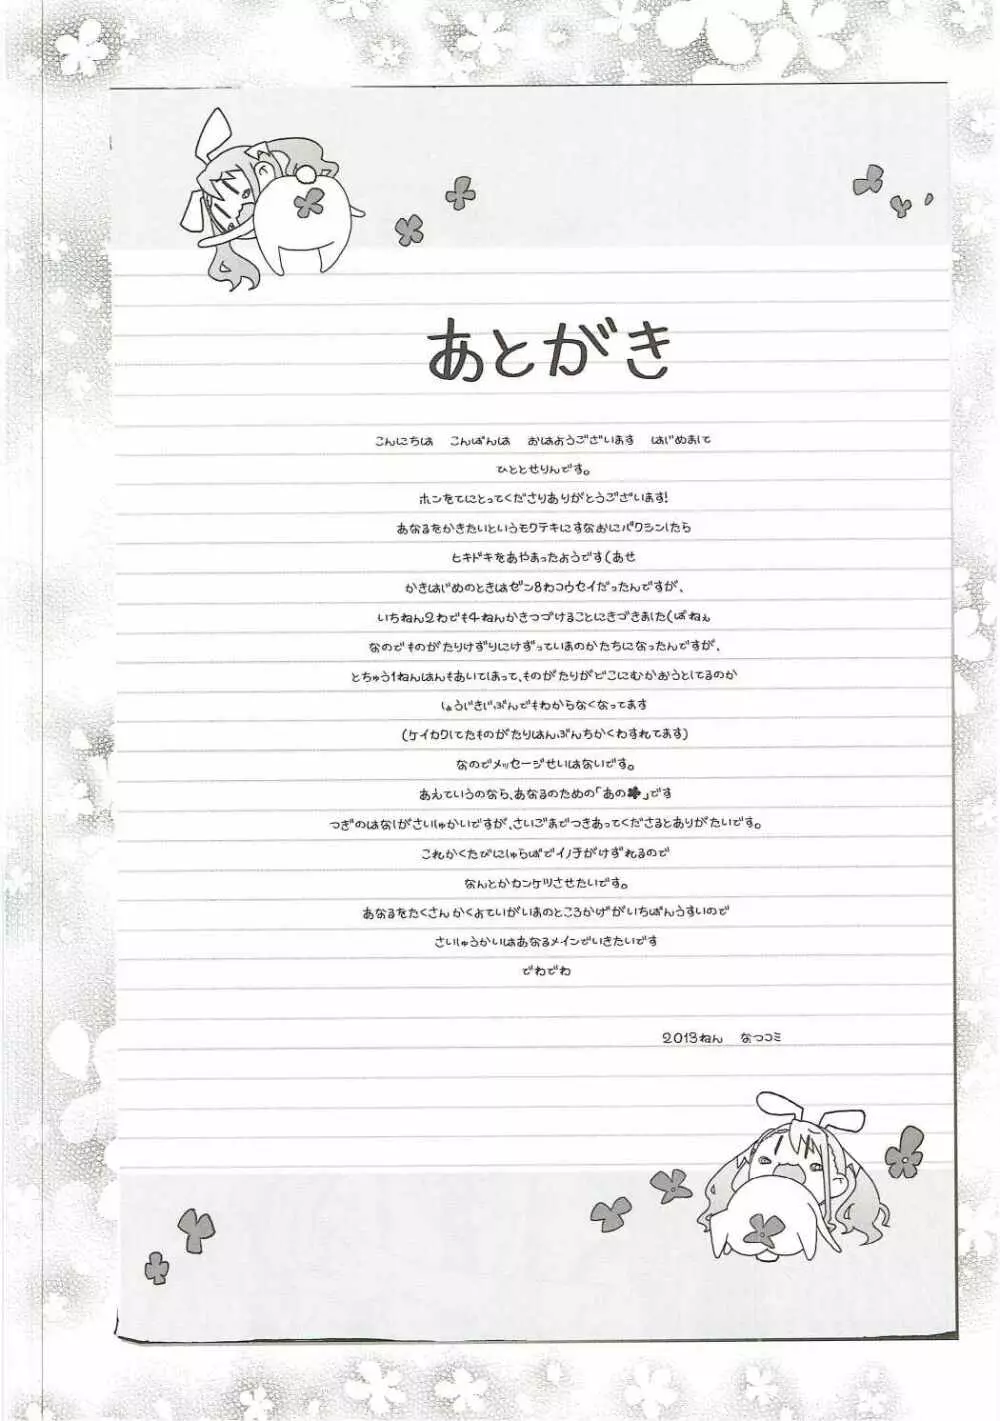 あとがき
こんにちは　こんばんは　おはようございます　はじめまして
ひととせりんです。
ホンをてにとってくださりありがとうございます!
あなるをかきたいというモクテキにすなおにバクシンしたら
ヒキドキをあやまったようです(あせ
かきはじめのときはゼン8わコウセイだったんですが、
いちねん2わでも4ねんかきつづけることにきづきました(ばねぇ
なのでものがたりけずりにけずっていまのかたちになったんですが、
とちゅう1ねんはんもあいてしまって、ものがたりがどこにむかおうとしてるのか
しょうじきじぶんでもわからなくなってます
(ケイカクしてたものがたりはんぶんちかくわすれてます)
なのでメッセージせいはないです。
あえていうのなら、あなるのための「あの♣」です
つぎのはなしがさいしゅかいですが、さいごまでつきあってくださるとありがたいです。
これかくたびにしゅらばでイノチがけずれるので
なんとかカンケツさせたいです。
あなるをたくさんかくよていがいまのところかげがいちばんうすいので
さいしゅうかいはあなるメインでいきたいです
でわでわ
2013ねん　なつコミ